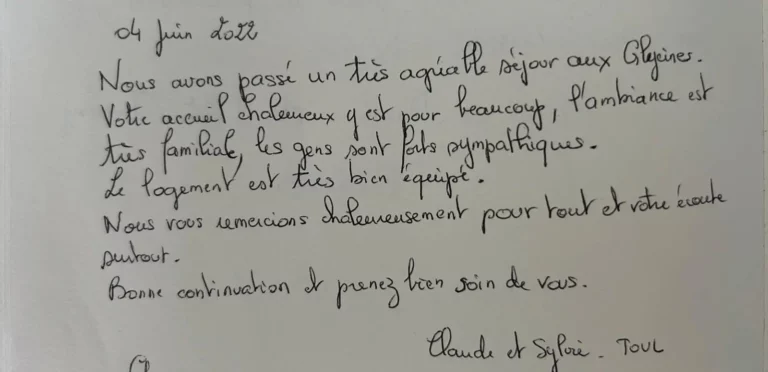 04 Juin 2022
Nous avons passé un très agréable séjour aux Glycines.
Votre accueil chaleureux y est pour beaucoup, l'ambiance est
très familiale, les gens sont forts sympathiques.
Le logement est très bien équipé.
Nous vous remercions chaleureusement pour tout et votre écoute
surtout.
Bonne continuation et prenez bien soin de vous.
Claude et Sylvie - TOUL